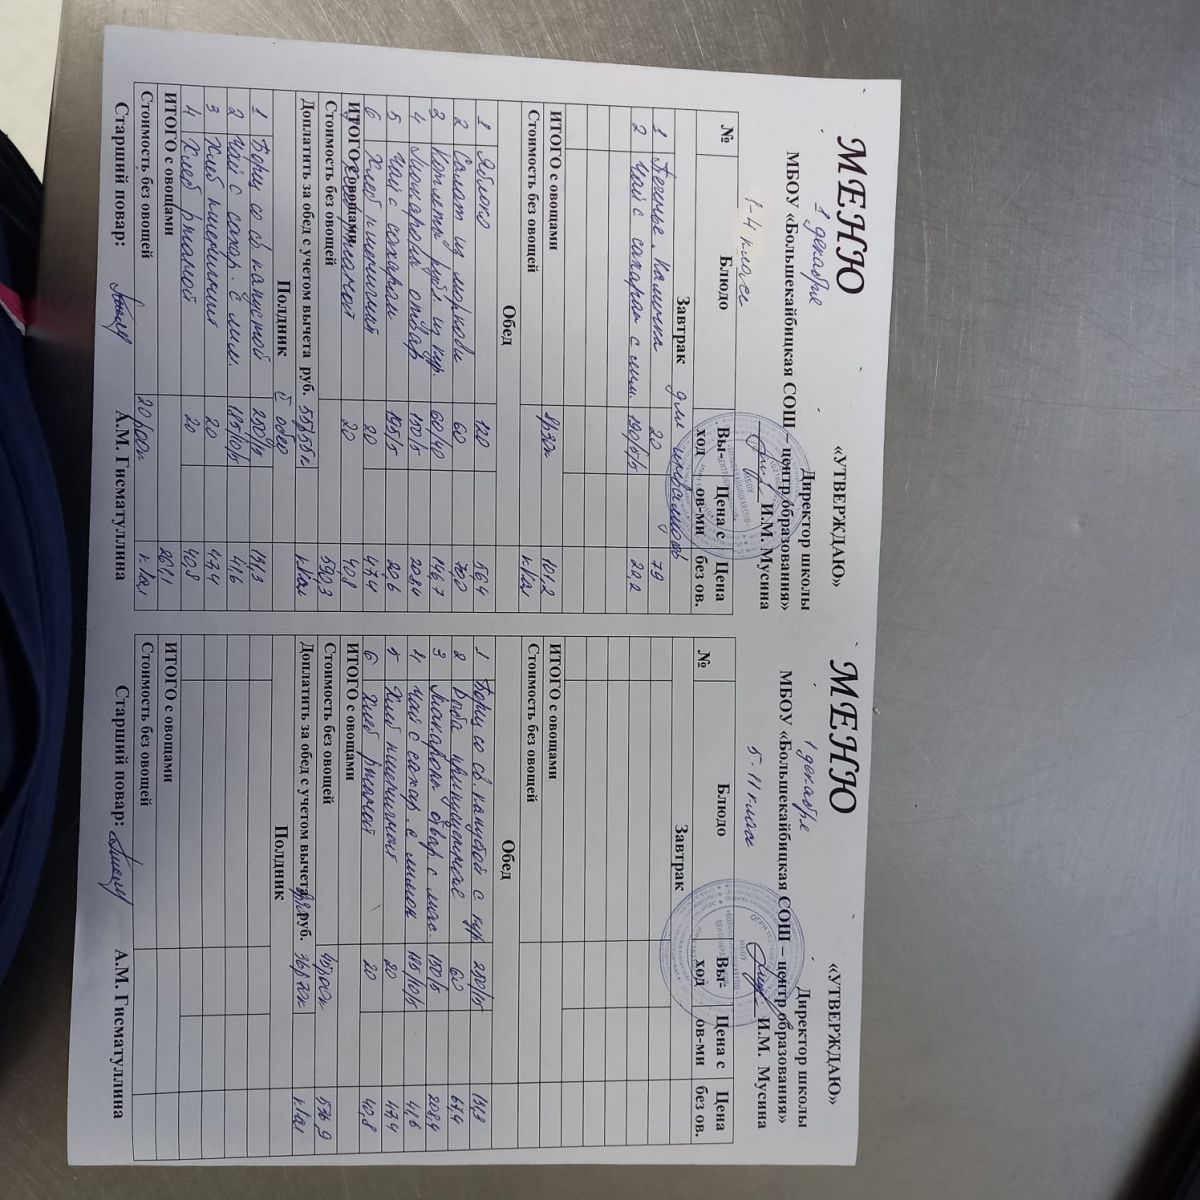 МЕНЮ
«УТВЕРЖДАЮ»
1 декабря
Директор школы
МБОУ «Большекайбицкая СОШ – центр образования»
И.М. Мусина
1-4 класс
№ Блюдо Вы-ход Цена с ов-ми Цена без ов.
Завтрак для
1 Печенье. Калинка 20 79
2 Чай с сахаром с лим. 190/5/5 20,2
ИТОГО с овощами 101.2
Стоимость без овощей ккал
Обед
1 Яблоко 120 56,4
2 Салат из моркови 60
3 Котлеты руб. из кур. 60/40 146,7
4 Макароны отвар 150/5 208,4
5 Чай с сахаром 195/5 20,6
6 Хлеб пшеничный 20 47,4
ИТОГО с овощами 20 40,8
Стоимость без овощей 590,3
Доплатить за обед с учетом вычета руб. ккал
Полдник
1 Борщ со св капустой 131,3
2 Чай с сахар. с лим. 185/10/5 41,6
3 Хлеб пшеничный 20 47,4
4 Хлеб ржаной 20 40,8
ИТОГО с овощами 261,1
Стоимость без овощей ккал
Старший повар: А.М. Гисматуллина
МЕНЮ
«УТВЕРЖДАЮ»
1 декабря
Директор школы
МБОУ «Большекайбицкая СОШ – центр образования»
И.М. Мусина
5-11 класс
№ Блюдо Вы-ход Цена с ов-ми Цена без ов.
Завтрак
ИТОГО с овощами
Стоимость без овощей
Обед
1 Борщ со св. капустой с кур 131,3
2 Рыба припущенная 60 67,4
3 Макароны отвар с мас. 150/5 208,4
4 Чай с сахар. с лимон 185/10/5 41,6
5 Хлеб пшеничный 20 47,4
6 Хлеб ржаной 20 40,8
ИТОГО с овощами
Стоимость без овощей 536,9
Доплатить за обед с учетом вычета руб. ккал
Полдник
ИТОГО с овощами
Стоимость без овощей
Старший повар: А.М. Гисматуллина